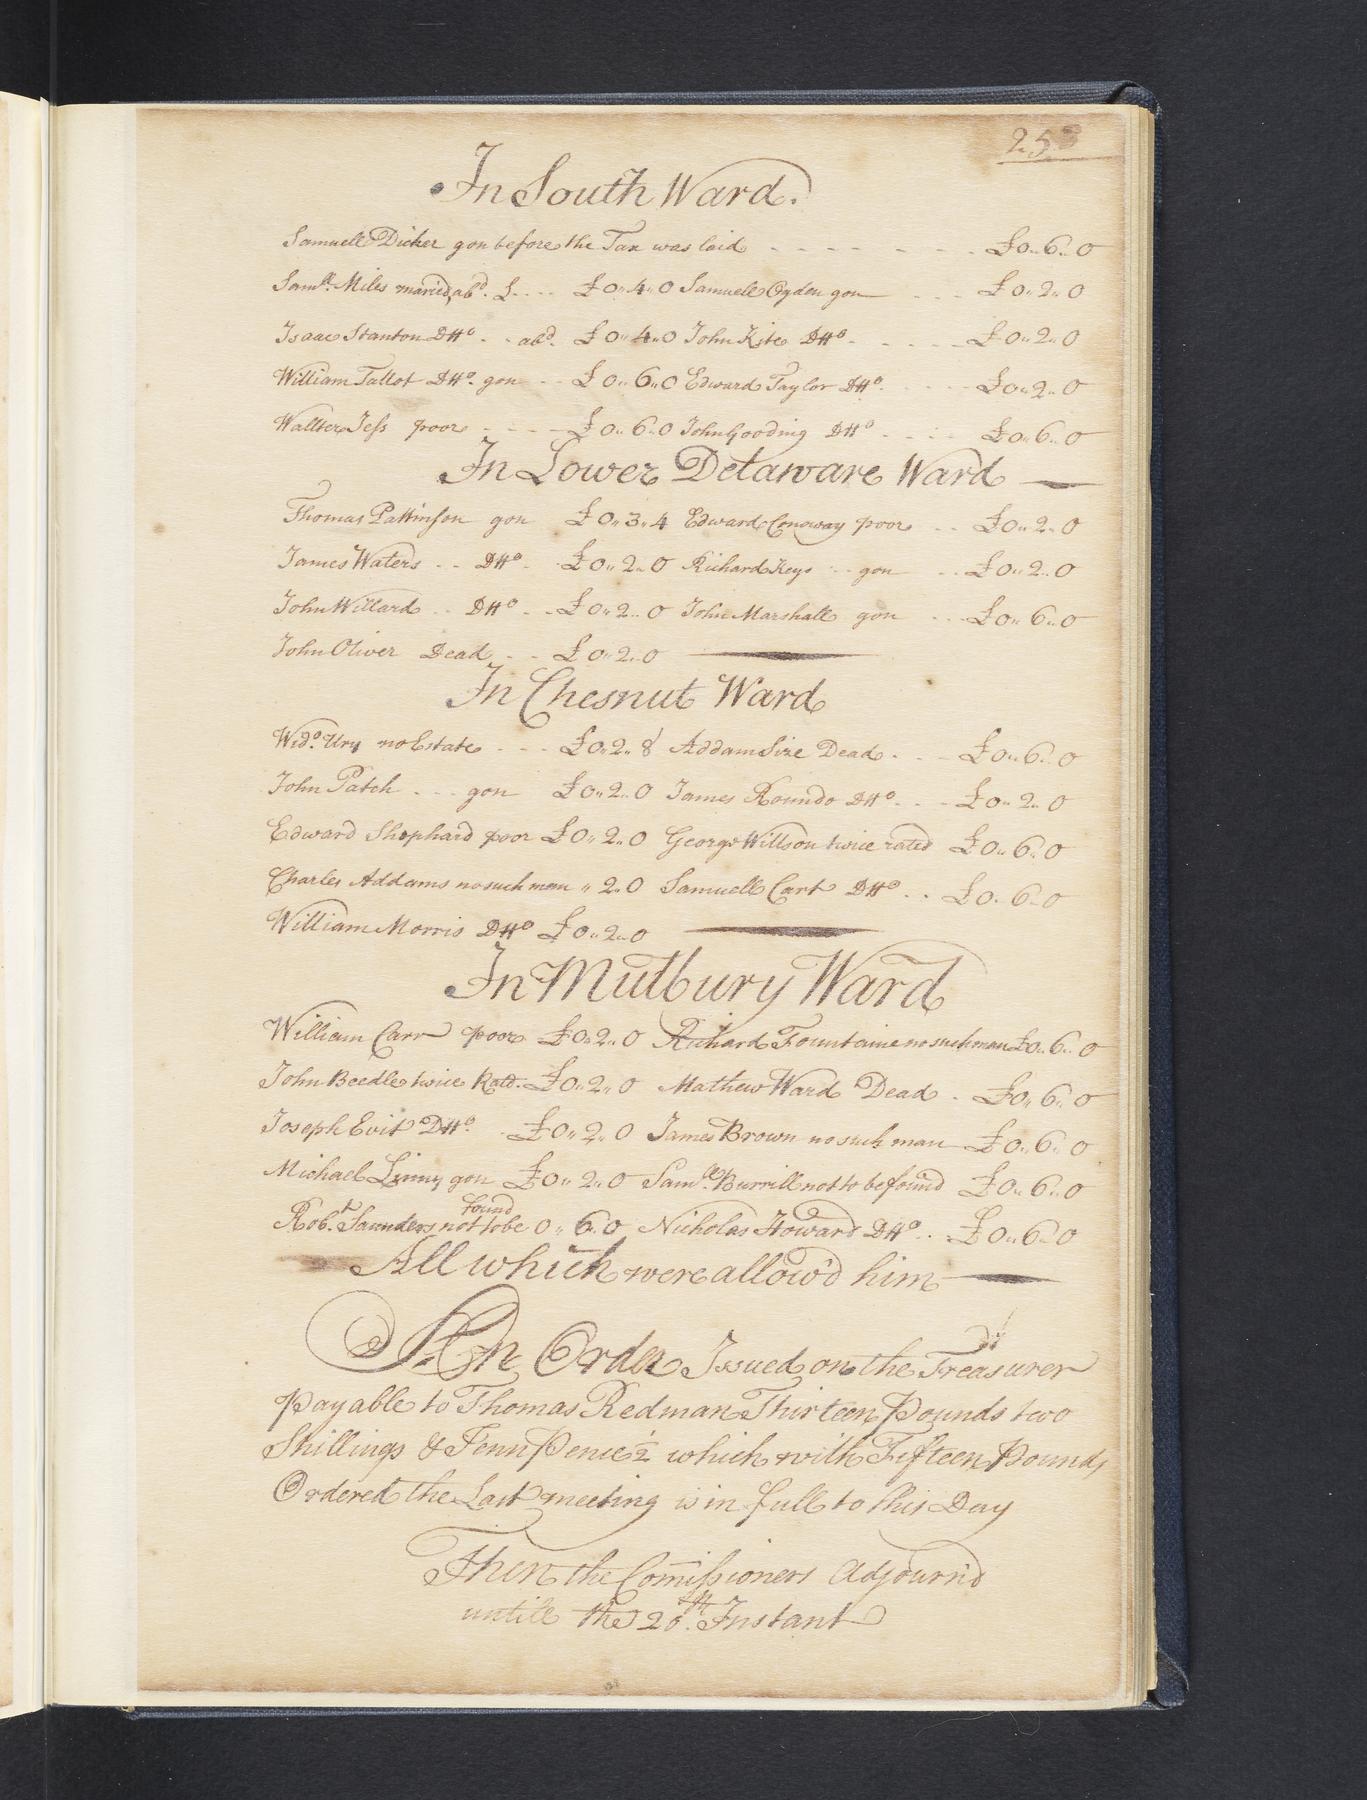 253
In South Ward.
Samuell Dicker gon before the Tax was laid - - - - - - - £0..6..0
Samll. Miles maried, abd. £ . . . . £0..4..0 Samuell Ogden gon . . . £0..2..0
Isaac Stanton Dtto. . . abd. £0..4..0 John Kite Dtto. . . . . . £0..2..0
William Tallot Dtto. gon . . £0..6..0 Edward Taylor Dtto. . . . . £0..2..0
Wallter Jess poor . . . . £0..6..0 John Gooding Dtto . . . . £0..6..0
In Lower Delaware Ward
Thomas Pattinson gon £0..3..4 Edward Conoway poor . . £0..2..0
James Waters . . Dtto. . £0..2..0 Richard Keys . . gon . . £0..2..0
John Willard . . Dtto . . £0..2..0 John Marshall gon . . . £0..6..0
John Oliver Dead . . £0..2..0
In Chesnut Ward
Wido. Ury no Estate . . . £0..2..8 Addam Size Dead . . . £0..6..0
John Patch . . . gon £0..2..0 James Roundo Dtto. . . . £0..2..0
Edward Shephard poor £0..2..0 George Willson twice rated £0..6..0
Charles Addams no such man .. 2..0 Samuell Cart Dtto . . £0..6..0
William Morris Dtto £0..2..0
In Mulbury Ward
William Carr poor £0..2..0 Richard Fountaine no such man £0..6..0
John Beedle twice Ratd. £0..2..0 Mathew Ward Dead . £0..6..0
Joseph Evit Dtto. . £0..2..0 James Brown no such man £0..6..0
Michael Linny gon £0..2..0 Samll. Burrill not to be found £0..6..0
Robt. Saunders not to be found 0..6..0 Nicholas Howard Dtto . . £0..6..0
All which were allow'd him
An Order Issued on the Treasurer
payable to Thomas Redman Thirteen Pounds two
Shillings & Tenn Pence ½ which with Fifteen Pounds
Ordered the Last meeting is in full to this Day
Then the Comissioners Adjourn'd
untill the 26th. Instant